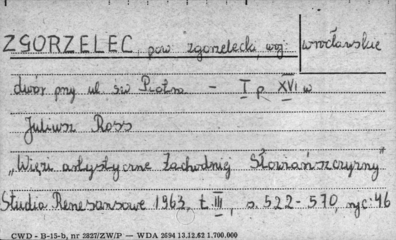 ZGORZELEC, pow zgorzelecki, woj: wrocławskie
dwór przy ul. św Piotra - I p. XVI w
Juliusz Ross
„Więzi artystyczne Zachodniej Słowiańszczyzny"
Studia Renesansowe 1963, t. III, s. 522-570, ryc: 46
CWD - B-15-b, nr 2827/ZW/P — WDA 2694 13.12.62 1.700.000